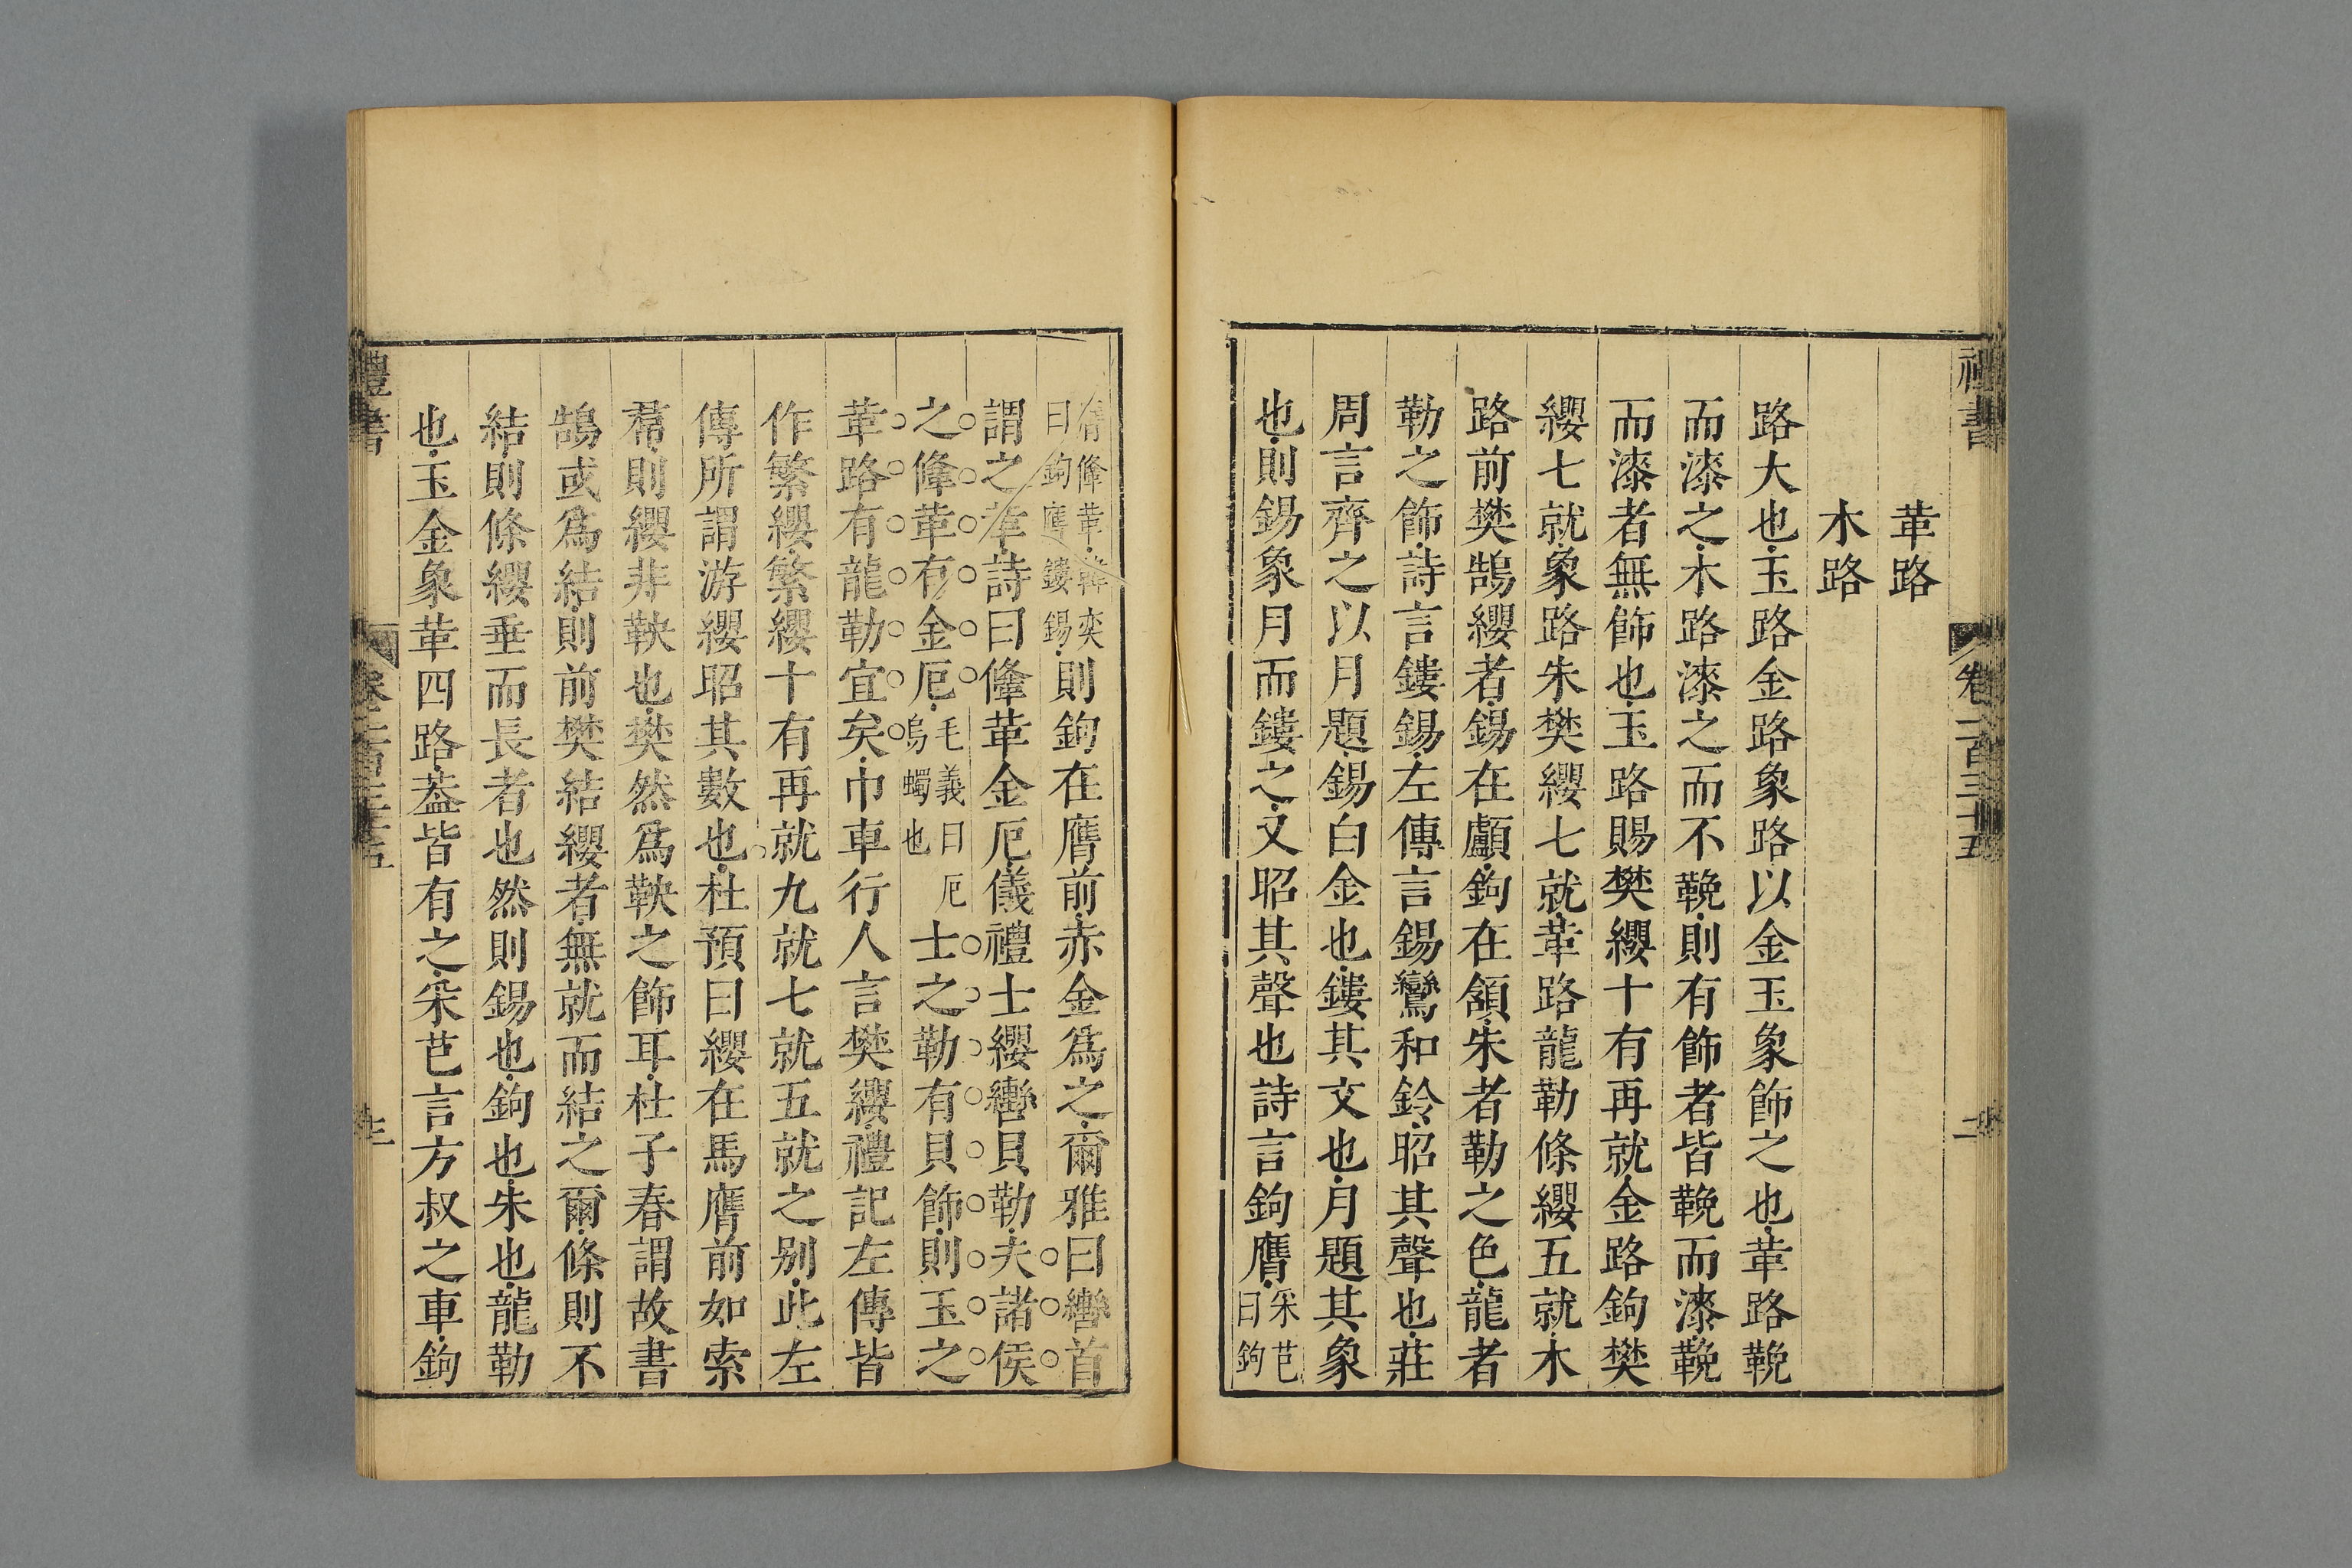 禮書
卷一百三十五
二
革路
木路
路大也玉路金路象路以金玉象飾之也革路鞔
而漆之木路漆之而不鞔則有飾者皆鞔而漆鞔
而漆者無飾也玉路賜樊纓十有再就金路鉤樊
纓七就象路朱樊纓七就革路龍勒條纓五就木
路前樊鵠纓者錫在顱鉤在頷朱者勒之色龍者
勒之飾詩言鏤錫左傳言錫鸞和鈴昭其聲也莊
周言齊之以月題錫白金也鏤其文也月題其象
也則錫象月而鏤之文昭其聲也詩言鉤膺采芑曰鉤
膺鞗革韓奕曰鉤膺鏤錫則鉤在膺前赤金爲之爾雅曰轡首
謂之革詩曰鞗革金厄儀禮士纓轡貝勒夫諸侯
之鞗革有金厄毛義曰厄烏蠋也士之勒有貝飾則玉之
革路有龍勒宜矣巾車行人言樊纓禮記左傳皆
作繁纓繁纓十有再就九就七就五就之別此左
傳所謂游纓昭其數也杜預曰纓在馬膺前如索
帬則纓非鞅也樊然爲鞅之飾耳杜子春謂故書
鵠或爲結則前樊結纓者無就而結之爾條則不
結則條纓垂而長者也然則錫也鉤也朱也龍勒
也玉金象革四路葢皆有之采芑言方叔之車鉤
禮書
卷一百三十五
三